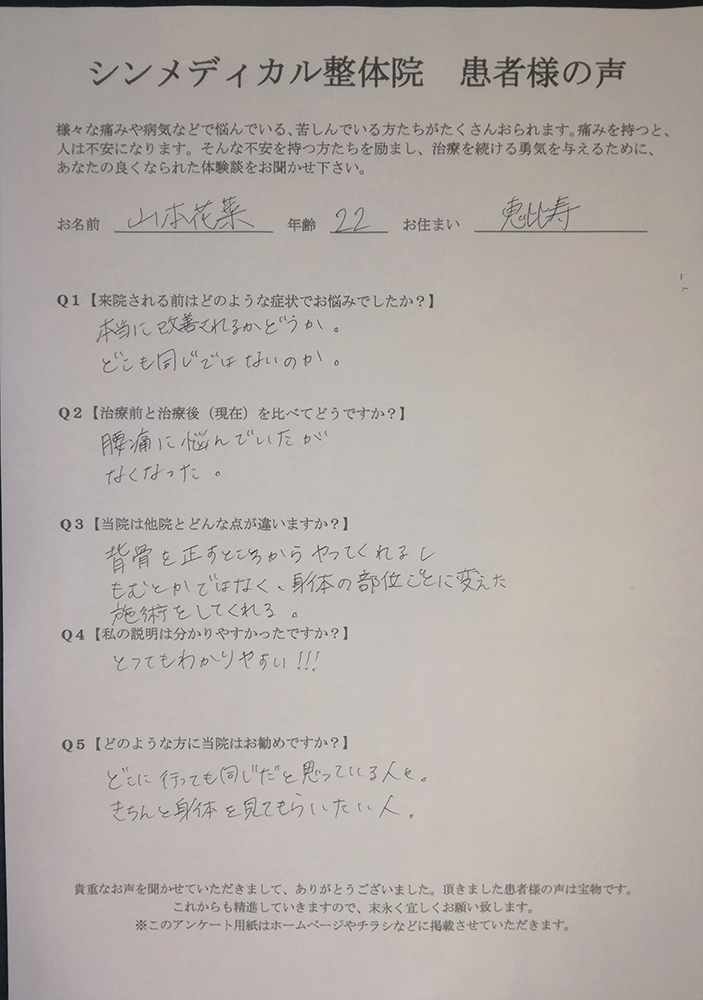 シンメディカル整体院　患者様の声
様々な痛みや病気などで悩んでいる、苦しんでいる方たちがたくさんおられます。痛みを持つと、
人は不安になります。そんな不安を持つ方たちを励まし、治療を続ける勇気を与えるために、
あなたの良くなられた体験談をお聞かせ下さい。
お名前　山本花菜　年齢　22　お住まい　恵比寿
Q1【来院される前はどのような症状でお悩みでしたか？】
本当に改善されるかどうか。
どこも同じではないのか。
Q2【治療前と治療後（現在）を比べてどうですか？】
腰痛に悩んでいたが
なくなった。
Q3【当院は他院とどんな点が違いますか？】
背骨を正すところからやってくれるし
もむとかではなく、身体の部位ごとに変えた
施術をしてくれる。
Q4【私の説明は分かりやすかったですか？】
とってもわかりやすい!!!
Q5【どのような方に当院はお勧めですか？】
どこに行っても同じだと思っている人と。
きちんと身体を見てもらいたい人。
貴重なお声を聞かせていただきまして、ありがとうございました。頂きました患者様の声は宝物です。
これからも精進していきますので、末永く宜しくお願い致します。
※このアンケート用紙はホームページやチラシなどに掲載させていただきます。